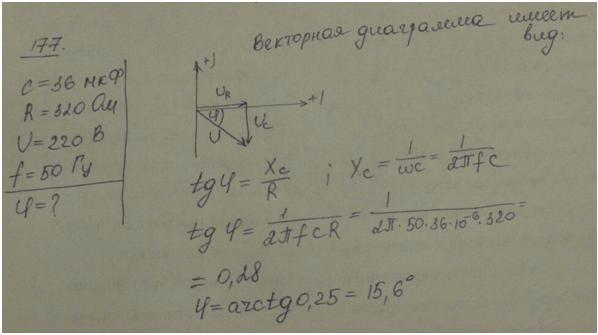 177.
C = 36 мкФ
R = 320 Ом
U = 220 В
f = 50 Гц
φ = ?
Векторная диаграмма имеет
вид:
+j
U_R
+1
φ
U
U_C
tg φ = X_C / R ; X_C = 1 / ωC = 1 / 2πfC
tg φ = 1 / 2πfCR = 1 / 2π·50·36·10⁻⁶·320 =
= 0,28
φ = arctg 0,25 = 15,6°